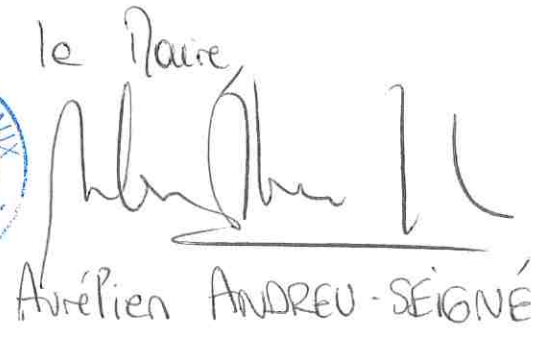 le Maire
Aurélien ANDREU-SEIGNÉ